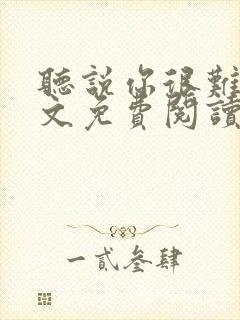 聽說你很難
文免費閱讀
一貳叁肆